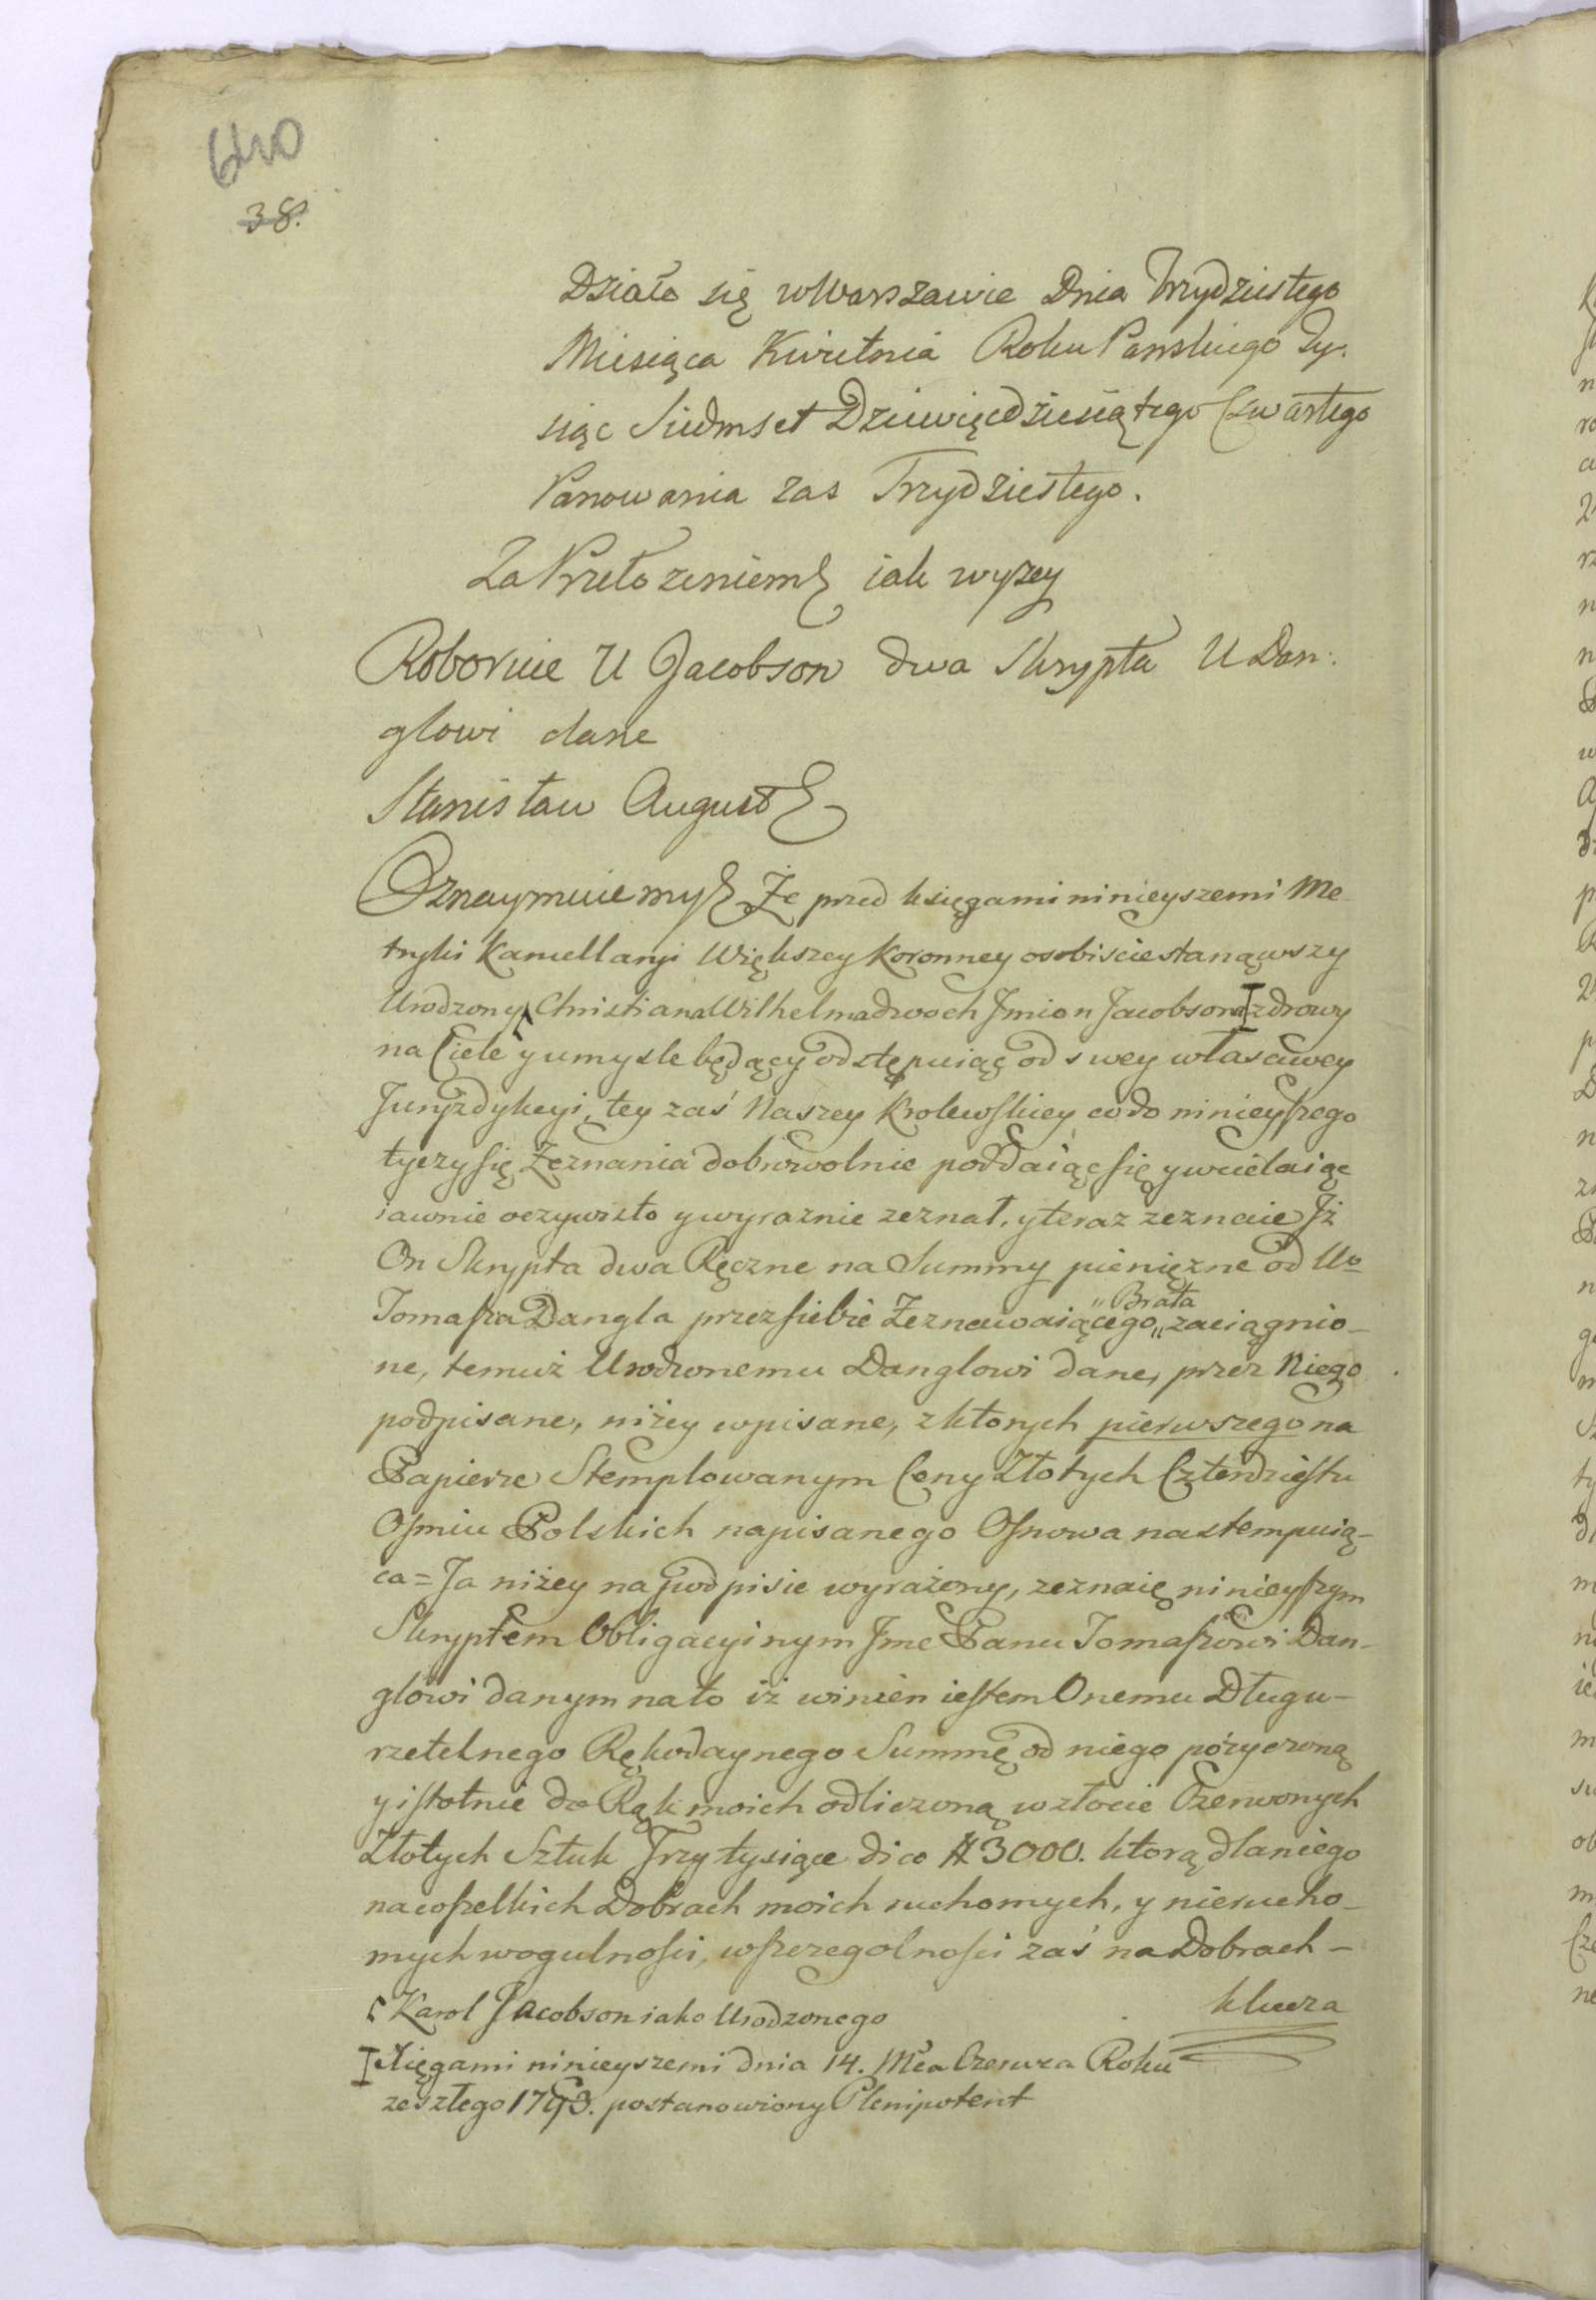 640
38.
Działo się w Warszawie Dnia Trzydziestego
Miesiąca Kwietnia Roku Panskiego Ty-
siąc Siedmset Dziewięcdziesiątego Czwartego
Panowania zas Trzydziestego.
Za Przełozeniem iak wyzey
Roboruie U Jacobson dwa Skrypta U Dan-
glowi dane
Stanisław August
Oznaymuiemy Że przed księgami ninieyszemi Me-
tryki Kancellaryi Większey Koronney osobiscie stanąwszy
Urodzony Christiana Wilhelma dwoch Jmion Jacobsona zdrowy
na Ciele y umysle będący odstępuiąc od swey własciwey
Juryzdykcyi, tey zaś Naszey Krolewskiey co do ninieyszego
tyczy się Zeznania dobrowolnie poddaiąc się y wcielaiąc
iawnie oczywisto y wyraznie zeznał, y teraz zeznaie Jż
On Skrypta dwa Ręczne na Summy pieniężne od Uo
Tomasza Dangla przez siebie Zeznawaiącego „Brata„ zaciągnio-
ne, temuż Urodzonemu Danglowi dane, przez Niego
podpisane, niżey wpisane, z ktorych pierwszego na
Papierze Stemplowanym Ceny Złotych Czterdziestu
Osmiu Polskich napisanego Osnowa nastempuią-
ca = Ja niżey na podpisie wyrażony, zeznaię ninieyszym
Skryptem Obligacyinym Jmc Panu Tomaszowi Dan-
glowi danym na to iż winien iestem Onemu Długu-
rzetelnego Rękodaynego Summę od niego pożyczoną
y istotnie do Rąk moich odliczoną w złocie Czerwonych
Złotych Sztuk Trzy tysiące dico # 3000. ktorą dla niego
na wszelkich Dobrach moich ruchomych, y nierucho-
mych wogulności, wszczegolności zaś na Dobrach-
klucza
Karol Jacobson iako Urodzonego
Xięgami ninieyszemi dnia 14. Mca Czerwca Roku
zeszłego 1793. postanowiony Plenipotent